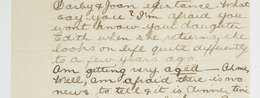 Darby & Joan existance. What
say you? I'm afraid you
wont know your daughter
Edith when she returns, she
looks on life quite differently
to a few years ago.
Am getting very aged — Ahme,
Well, am afraid there is no
news, to tell it is dinner time